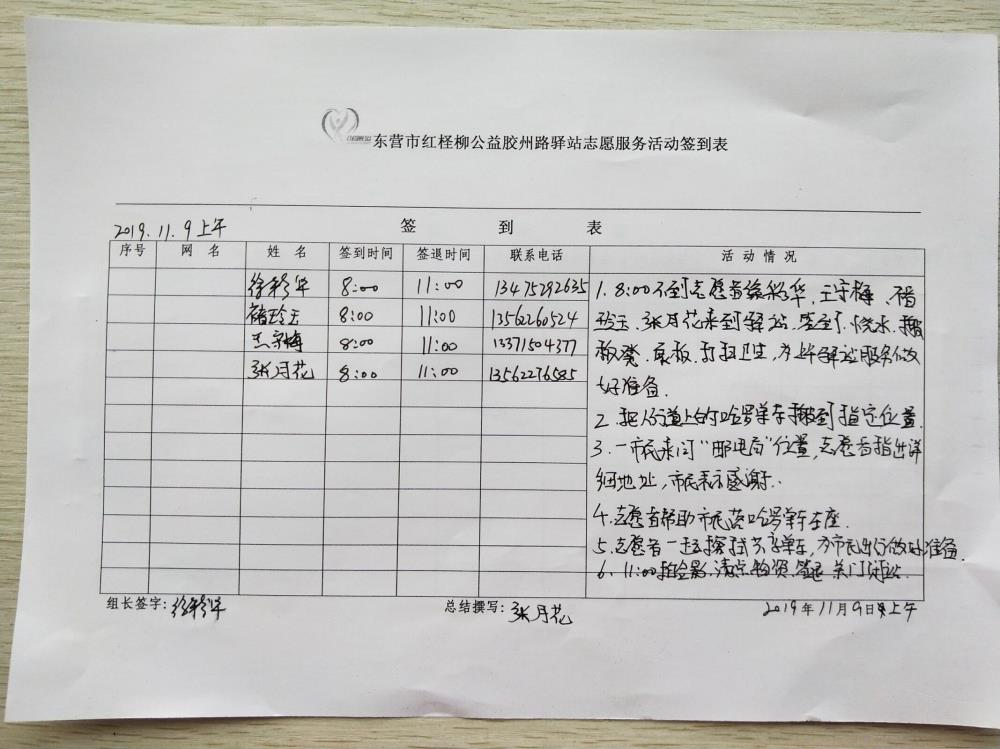 东营市红柽柳公益胶州路驿站志愿服务活动签到表
2019.11.9上午 签 到 表
序号 网 名 姓 名 签到时间 签退时间 联系电话 活 动 情 况
徐彩华 8:00 11:00 13475292635
褚玲玉 8:00 11:00 13562260524
王守梅 8:00 11:00 13371504377
张月花 8:00 11:00 13562276585
1. 8:00不到志愿者徐彩华、王守梅、褚
玲玉、张月花来到驿站,签到、烧水、搬
板凳、展板、打扫卫生,为上午驿站服务做
好准备.
2. 把人行道上的哈罗单车搬到指定位置.
3. 一市民来问“邮电局”位置,志愿者指出详
细地址,市民表示感谢.
4.志愿者帮助市民 哈罗单车车座.
5.志愿者一起擦拭共享单车,为市民出行做好准备.
6. 11:00拍合影.清点物资.签退.关门闭站.
组长签字:徐彩华 总结撰写:张月花 2019年11月9日上午